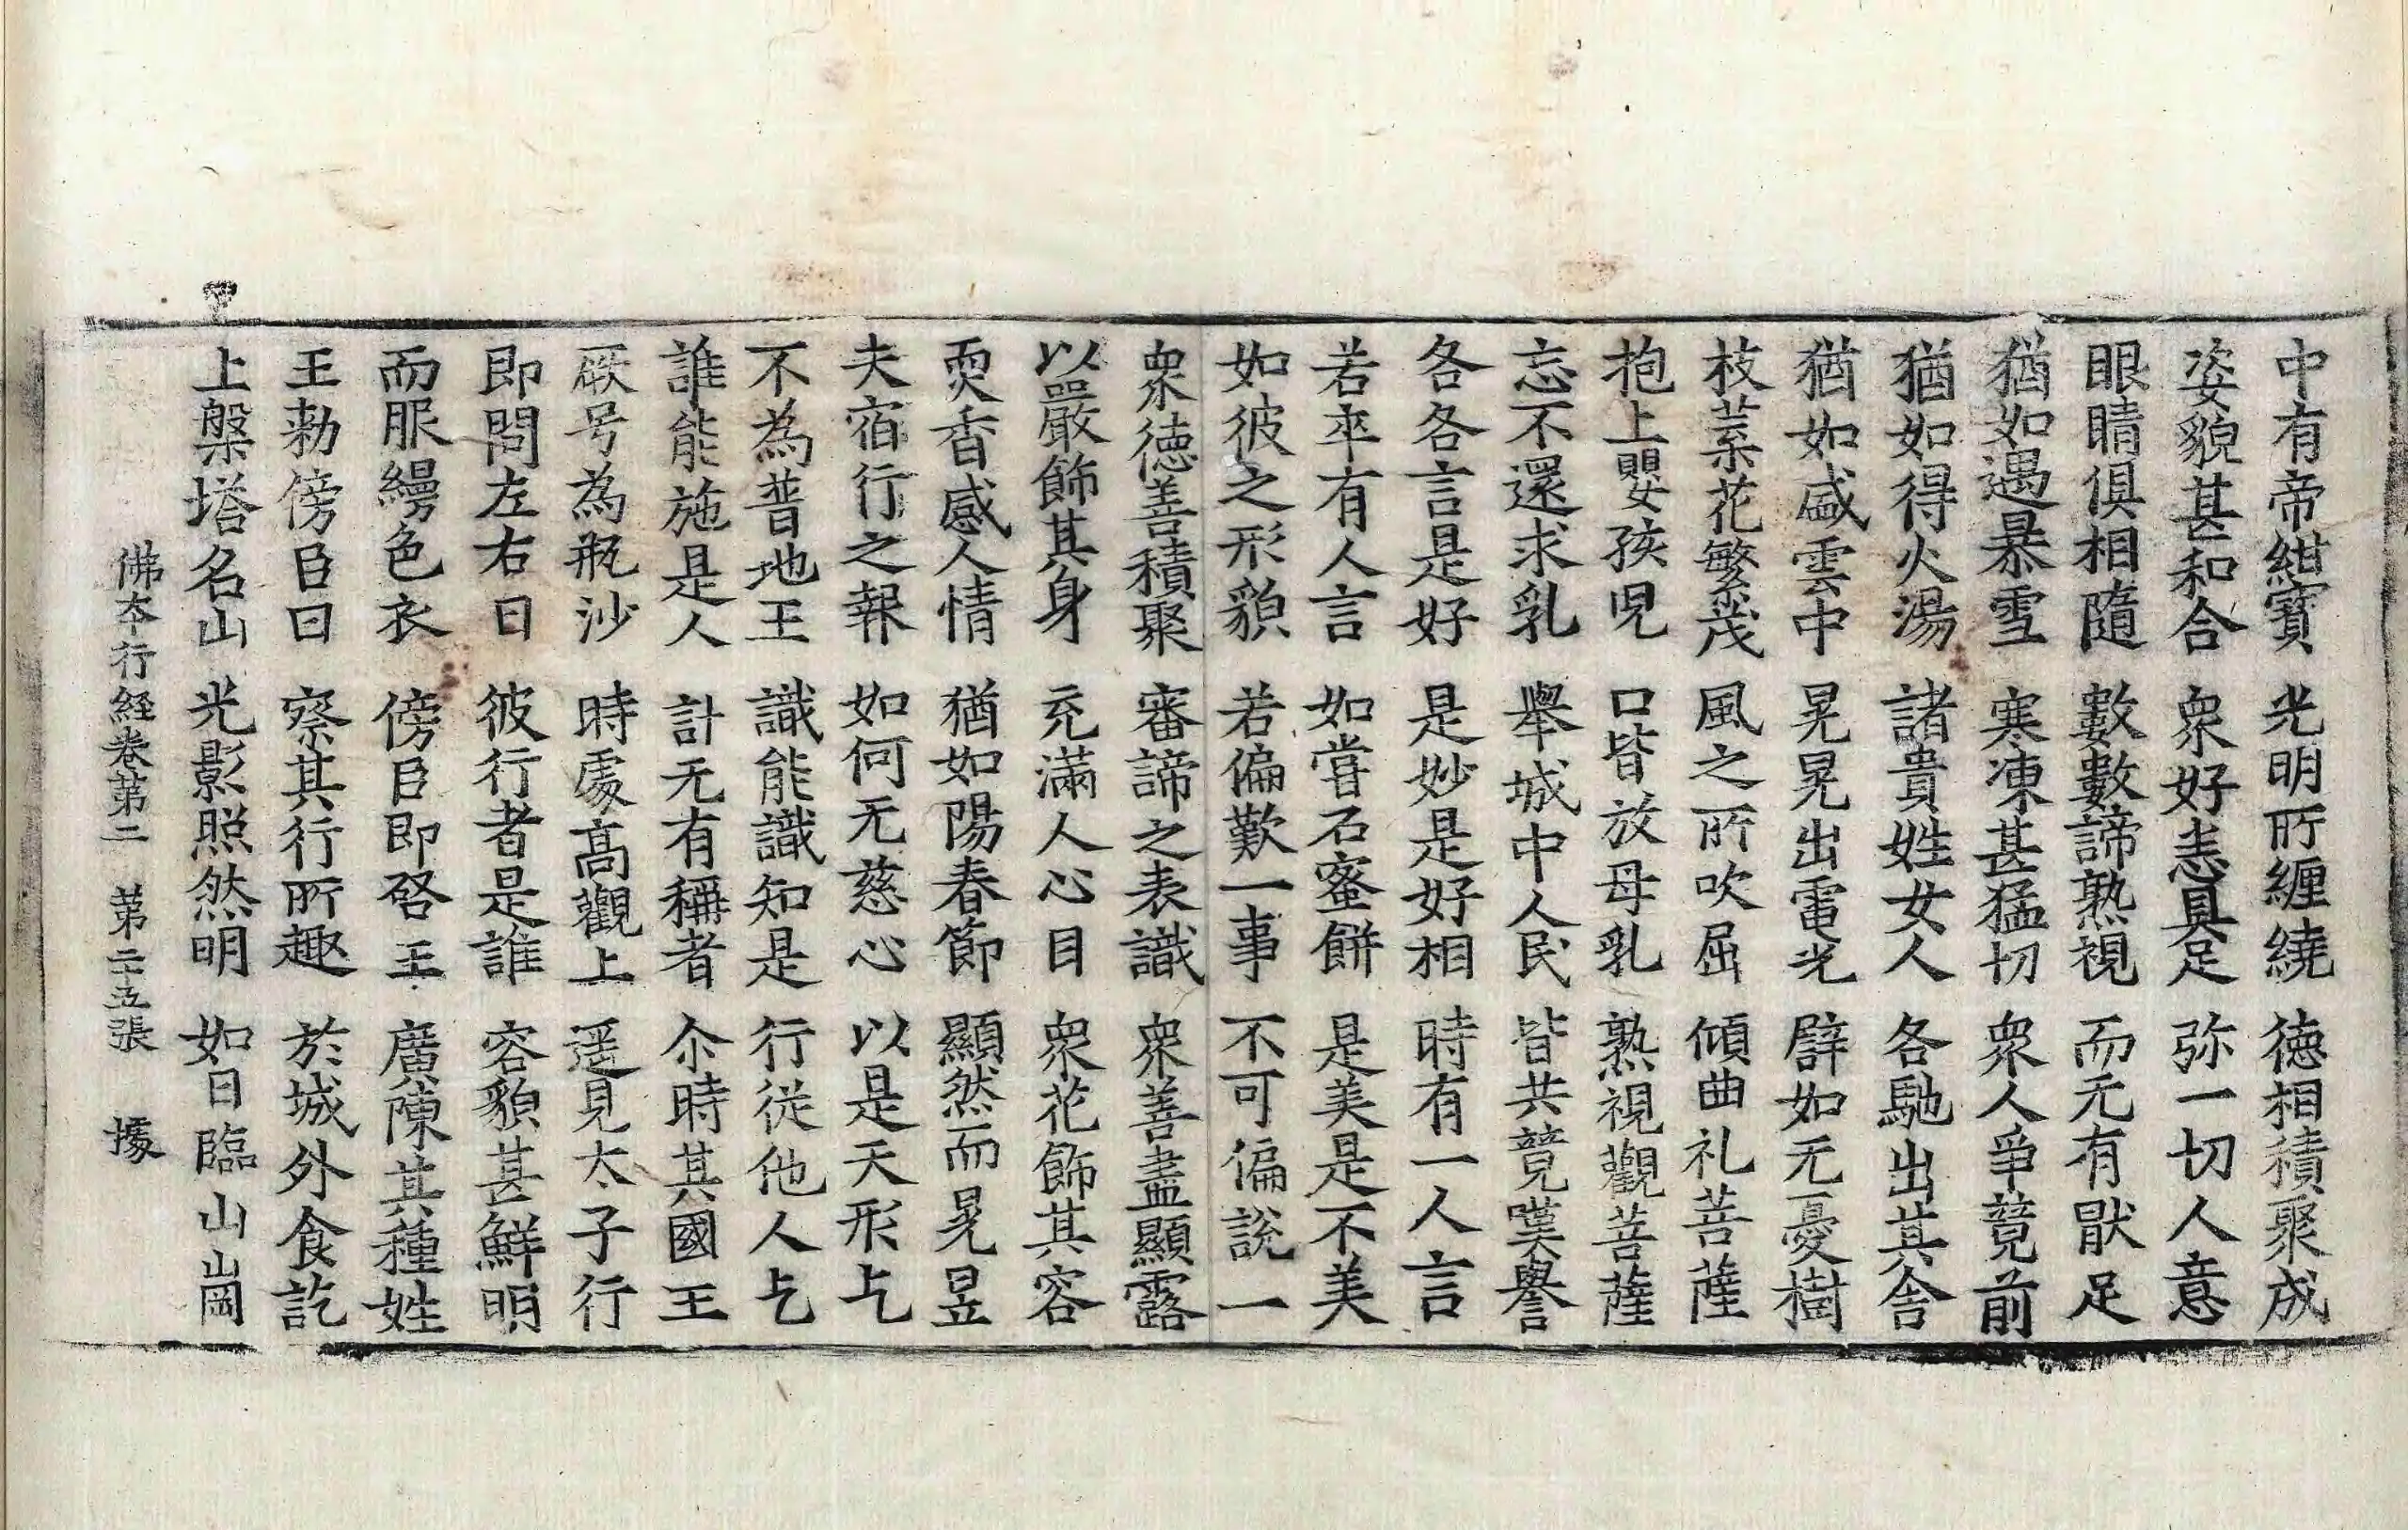 中有帝紺寶 光明所纏繞 德相積聚成
姿貌甚和合 衆好恚具足 弥一切人意
眼睛俱相隨 數數諦熟視 而无有猒足
猶如遇暴雪 寒凍甚猛切 衆人爭竟前
猶如得火湯 諸貴姓女人 各馳出其舍
猶如盛雲中 晃晃出電光 譬如无憂樹
枝葉花繁茂 風之所吹屈 傾曲礼菩薩
抱上嬰孩兒 口皆放母乳 熟視觀菩薩
忘不還求乳 舉城中人民 皆共竟嘆譽
各各言是好 是妙是好相 時有一人言
若卒有人言 如嘗石蜜餅 是美是不美
如彼之形貌 若偏歎一事 不可偏說一
衆德善積聚 審諦之表識 衆善盡顯露
以嚴飾其身 充滿人心目 衆花飾其容
耎香感人情 猶如陽春節 顯然而晃昱
夫宿行之報 如何无慈心 以是天形乞
不為普地王 識能識知是 行從他人乞
誰能施是人 計无有稱者 尒時其國王
厥号為瓶沙 時處高觀上 遥見太子行
即問左右曰 彼行者是誰 容貌甚鮮明
而服縵色衣 傍臣即啓王 廣陳其種姓
王勑傍臣曰 察其行所趣 於城外食訖
上槃塔名山 光影照然明 如日臨山崗
佛夲行経卷第二 第二十五張 據